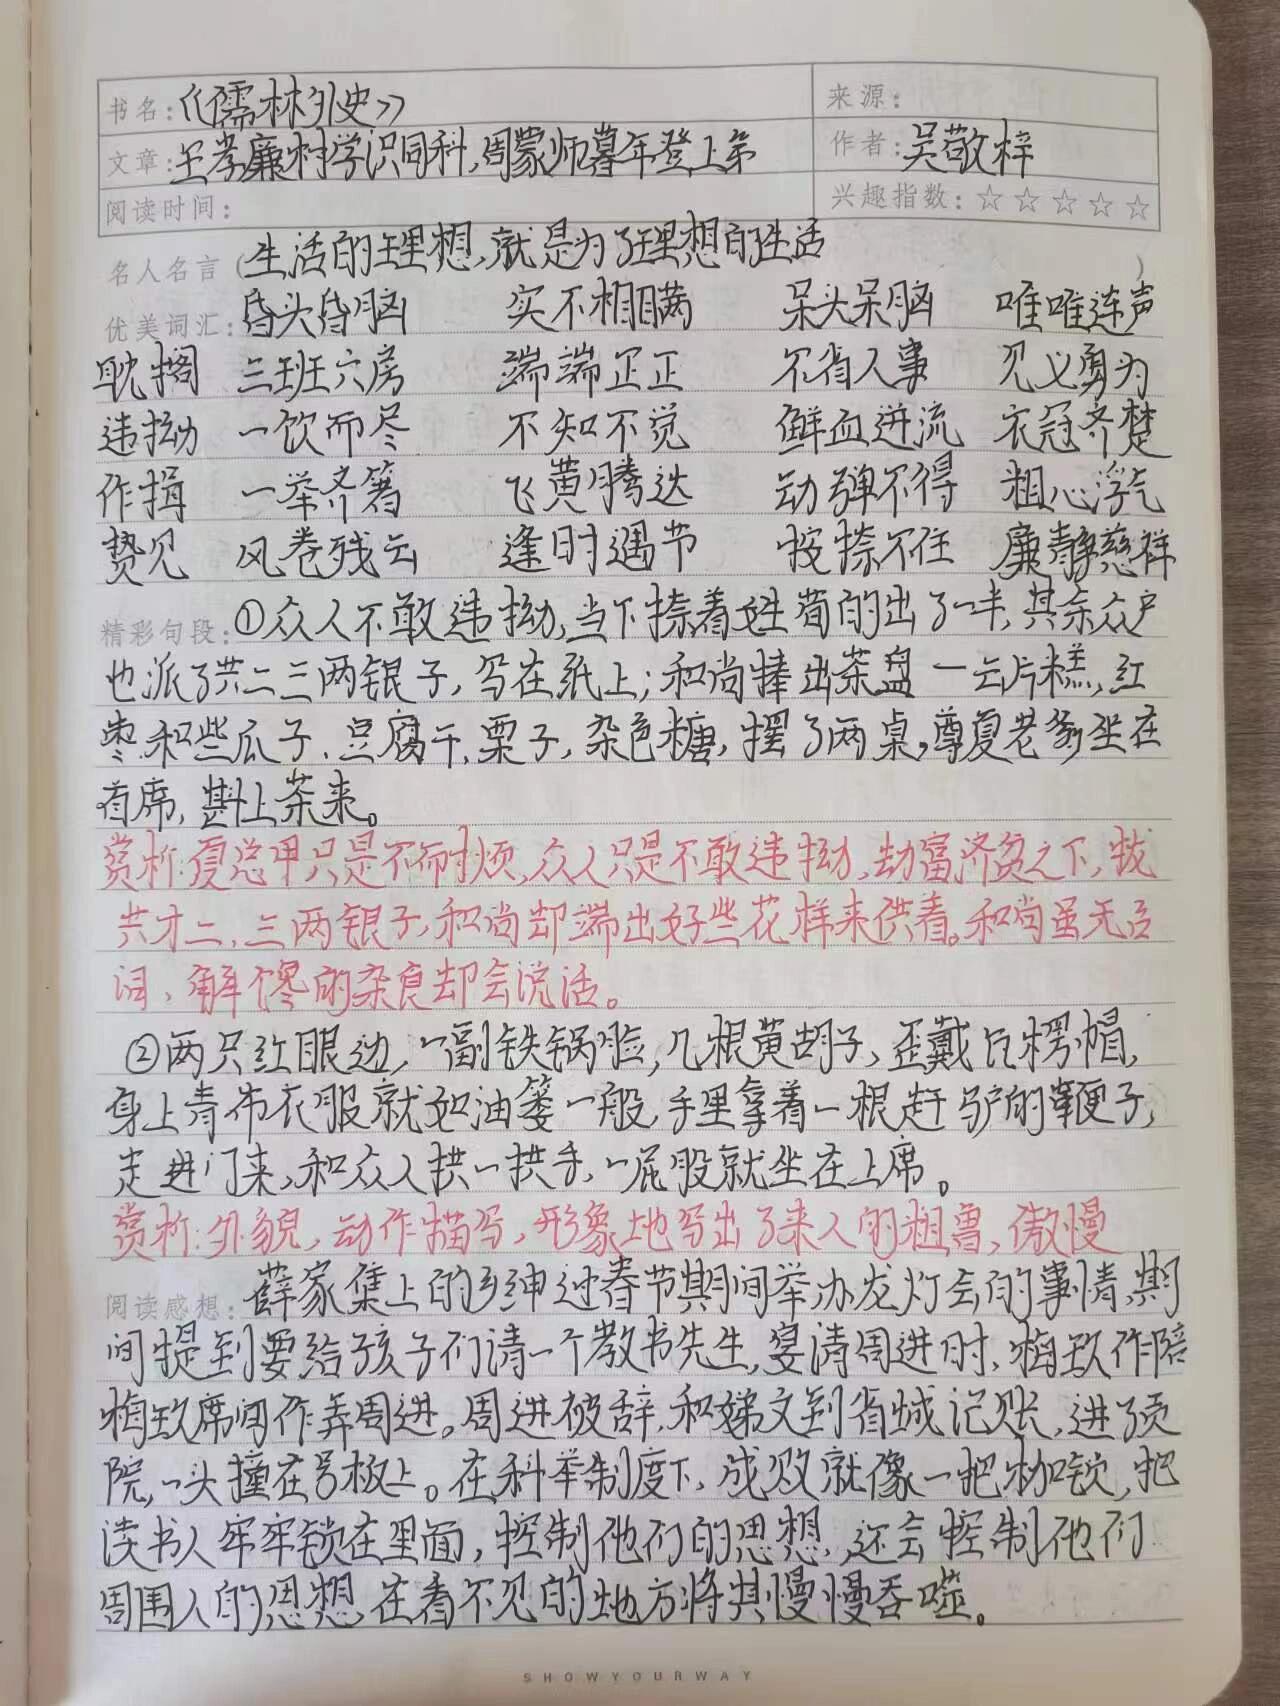 书名:《儒林外史》 来源:
文章:王孝廉村学识同科,周蒙师暮年登上第 作者:吴敬梓
阅读时间: 兴趣指数:☆☆☆☆☆
名人名言(生活的理想,就是为了理想的生活)
优美词汇:昏头昏脑 实不相瞒 呆头呆脑 唯唯连声
耽搁 三班六房 端端正正 不省人事 见义勇为
违拗 一饮而尽 不知不觉 鲜血迸流 衣冠齐楚
作揖 一举齐箸 飞黄腾达 动弹不得 粗心浮气
贽见 风卷残云 逢时遇节 按捺不住 廉静慈祥
精彩句段:①众人不敢违拗,当下捺着姓荀的出了一半,其余众户
也派了共二三两银子,写在纸上;和尚捧出茶盘一云片糕,红
枣.和些瓜子、豆腐干,栗子,杂色糖,摆了两桌,尊夏老爹坐在
首席,斟上茶来。
赏析:夏总甲只是不耐烦,众人只是不敢违拗,劫富济贫之下,拢
共才二,三两银子,和尚却端出好些花样来供着。和尚虽无台
词,解馋的杂食却会说话。
②两只红眼边,一副铁锅脸,几根黄胡子,歪戴瓦楞帽,
身上青布衣服就如油篓一般,手里拿着一根赶驴的鞭子,
走进门来,和众人拱一拱手,一屁股就坐在上席。
赏析:外貌,动作描写,形象地写出了来人的粗鲁,傲慢
阅读感想:薛家集上的乡绅过春节期间举办龙灯会的事情,期
间提到要给孩子们请一个教书先生,宴请周进时,梅玖作陪
梅玖席间作弄周进。周进被辞,和娣丈到省城记账,进了贡
院,一头撞在号板上。在科举制度下,成败就像一把枷锁,把
读书人牢牢锁在里面,控制他们的思想,还会控制他们
周围人的思想,在看不见的地方将其慢慢吞噬。
SHOWYOURWAY